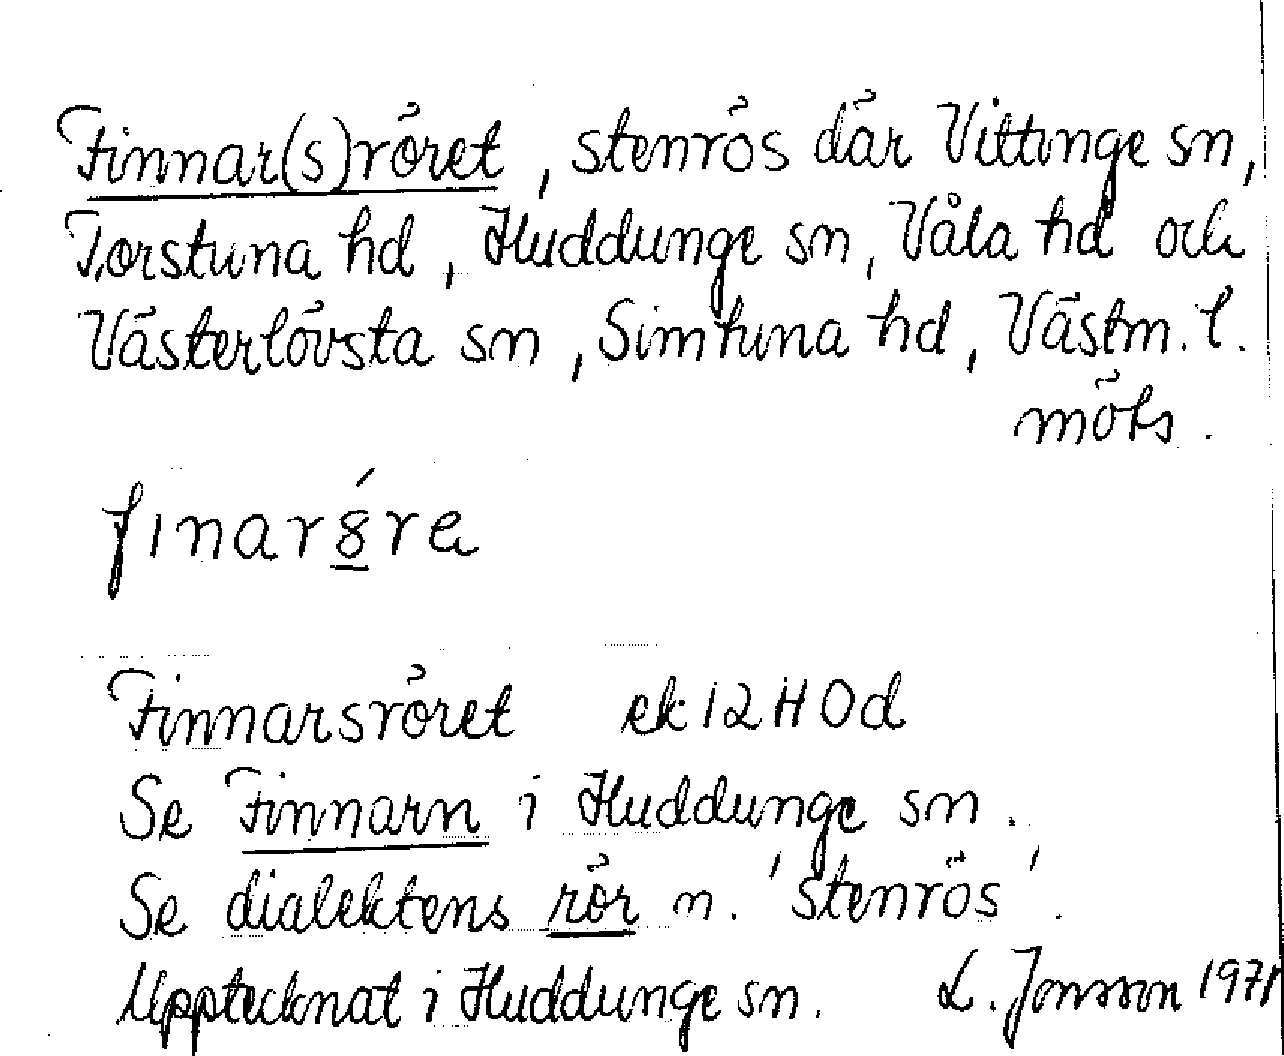 Finnar(s)röret, stenrös där Vittinge sn,
Torstuna hd, Huddunge sn, Våla hd och
Västerlövsta sn, Simtuna hd, Västm. l.
möts.
finarṓ̱re
Finnarsröret ek 12 H 0d
Se Finnarn i Huddunge sn.
Se dialektens rör n. 'stenrös'.
Upptecknat i Huddunge sn. L. Jonsson 1971